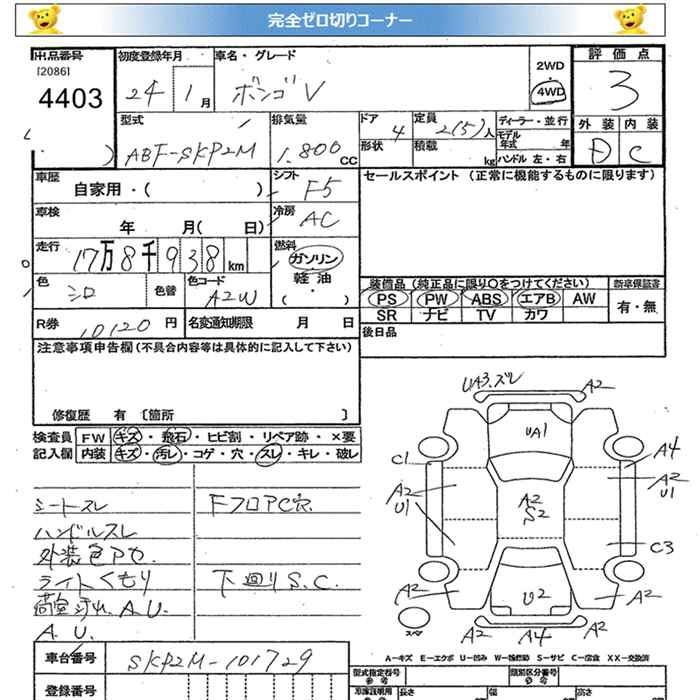 完全ゼロ切りコーナー
出品番号 初度登録年月 車名・グレード 評価点
[2086] 2WD
4403 24 1月 ボンゴV 4WD 3
型式 排気量 ドア 定員 ディーラー・並行 外装 内装
4 2(5)人 モデル年式 年
ABF-SKP2M 1.800cc 形状 積載 kg ハンドル 左・右 D C
車歴 シフト セールスポイント(正常に機能するものに限ります)
自家用・( ) F5
車検 冷房
年 月(日) AC
走行 燃料
17万8千938km ガソリン
色 色替 色コード 軽油 装備品(純正品に限り○をつけてください) 新車保証書
シロ A2W (・) PS PW ABS エアB AW 有・無
SR ナビ TV カワ
R券 10120円 名変通知期限 月 日 後日品
注意事項申告欄(不具合内容等は具体的に記入して下さい)
修復歴 有 [箇所 ]
検査員 FW キズ・飛石・ヒビ割・リペア跡・×要
記入欄 内装 キズ・汚レ・コゲ・穴・スレ・キレ・破レ
シートスレ FフロアC穴
ハンドルスレ
外装色アセ
ライトくもり 下廻りS.C.
荷室 A.U.
A.U.
UA3.ズレ A2
UA1
C1 A4
A2 U1 A2 U1
A2 S2
C3
A2 U2 A2
スペア A2 A4 A2
A-キズ E-エクボ U-凹み W-補修跡 S-サビ C-腐食 XX-交換済
車台番号 SKP2M-101729 型式指定番号 参考 類別区分番号 参考
登録番号 長さ 幅 高さ